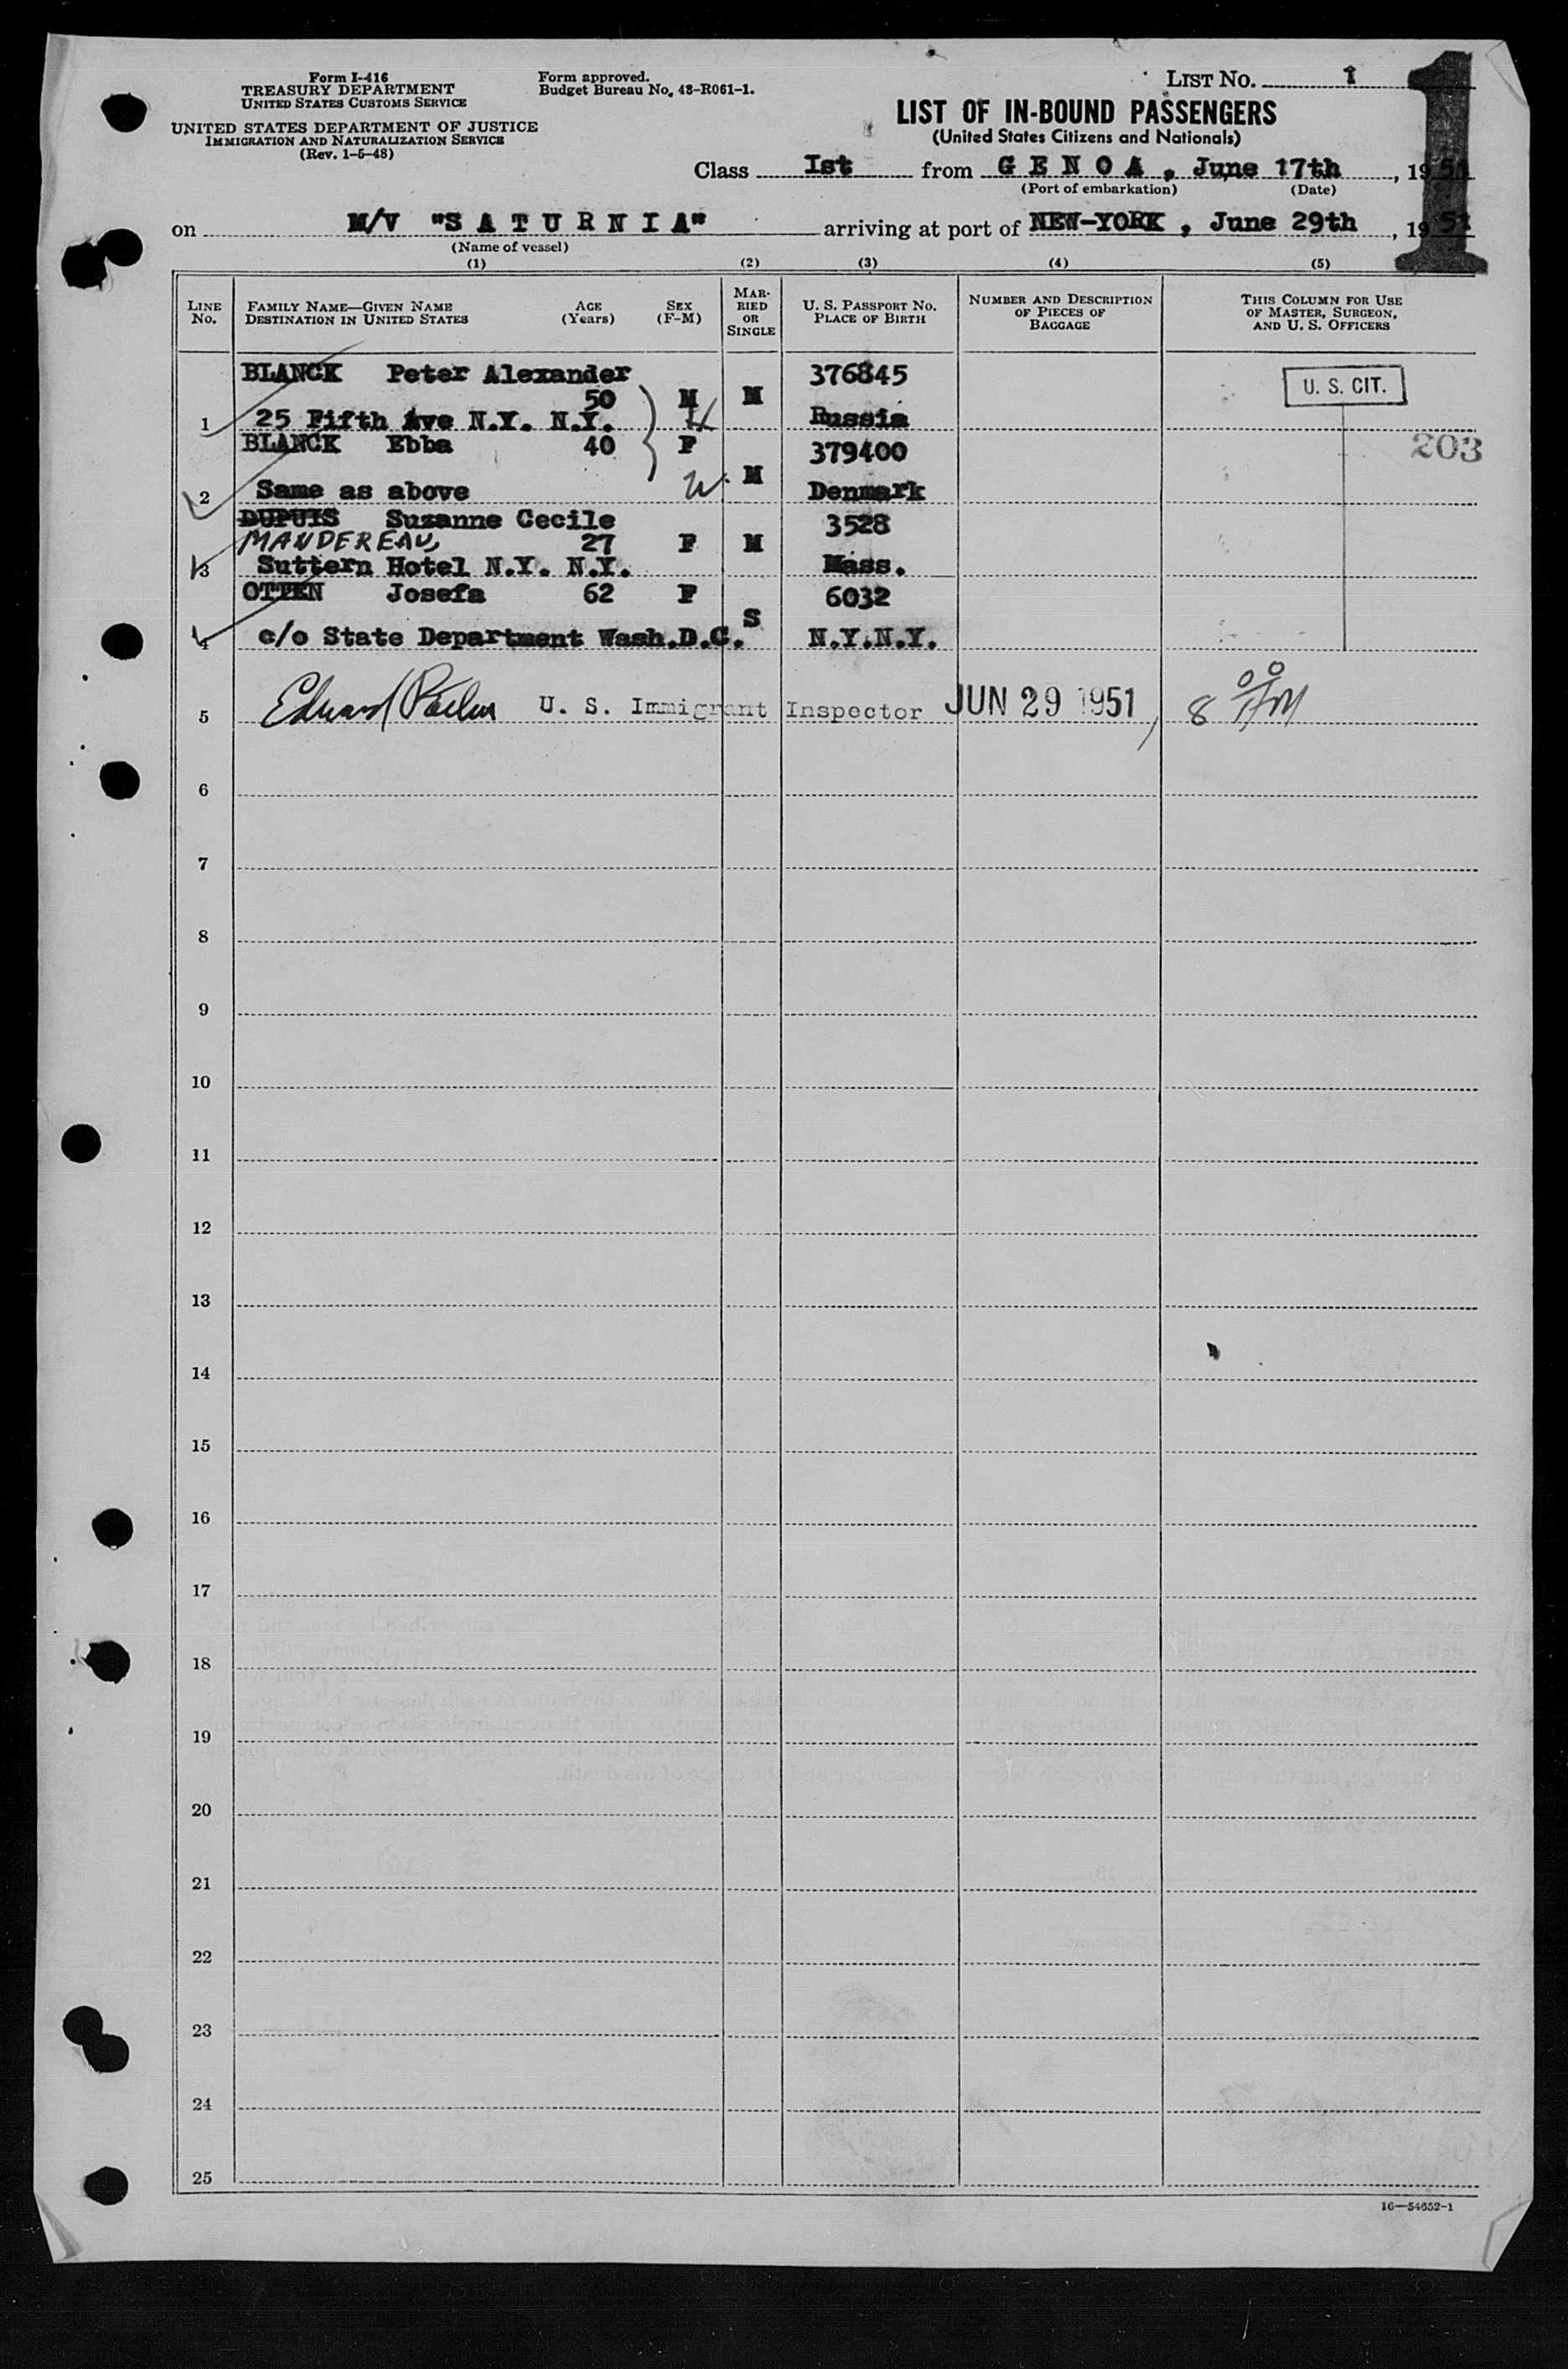 Form I-416
TREASURY DEPARTMENT
UNITED STATES CUSTOMS SERVICE
UNITED STATES DEPARTMENT OF JUSTICE
IMMIGRATION AND NATURALIZATION SERVICE
(Rev. 1-5-48)
Form approved.
Budget Bureau No. 43-R061-1.
LIST NO. 1
1
LIST OF IN-BOUND PASSENGERS
(United States Citizens and Nationals)
Class Ist from G E N O A , June 17th , 1951
(Port of embarkation) (Date)
on M/V "S A T U R N I A" arriving at port of NEW-YORK , June 29th , 1951
(Name of vessel)
(1) (2) (3) (4) (5)
LINE No. FAMILY NAME—GIVEN NAME DESTINATION IN UNITED STATES AGE (Years) SEX (F-M) MARRIED OR SINGLE U. S. PASSPORT NO. PLACE OF BIRTH NUMBER AND DESCRIPTION OF PIECES OF BAGGAGE THIS COLUMN FOR USE OF MASTER, SURGEON, AND U. S. OFFICERS
BLANCK Peter Alexander 376845
50 M M U. S. CIT.
1 25 Fifth Ave N.Y. N.Y. H Russia
BLANCK Ebba 40 F 379400 203
W. M
2 Same as above Denmark
DUPUIS Suzanne Cecile 3528
MANDEREAU, 27 F M
3 Suttern Hotel N.Y. N.Y. Mass.
OTTEN Josefa 62 F 6032
S
4 c/o State Department Wash.D.C. N.Y.N.Y.
5 Edward U. S. Immigrant Inspector JUN 29 1951, 8 00 AM
6
7
8
9
10
11
12
13
14
15
16
17
18
19
20
21
22
23
24
25
16—54652-1